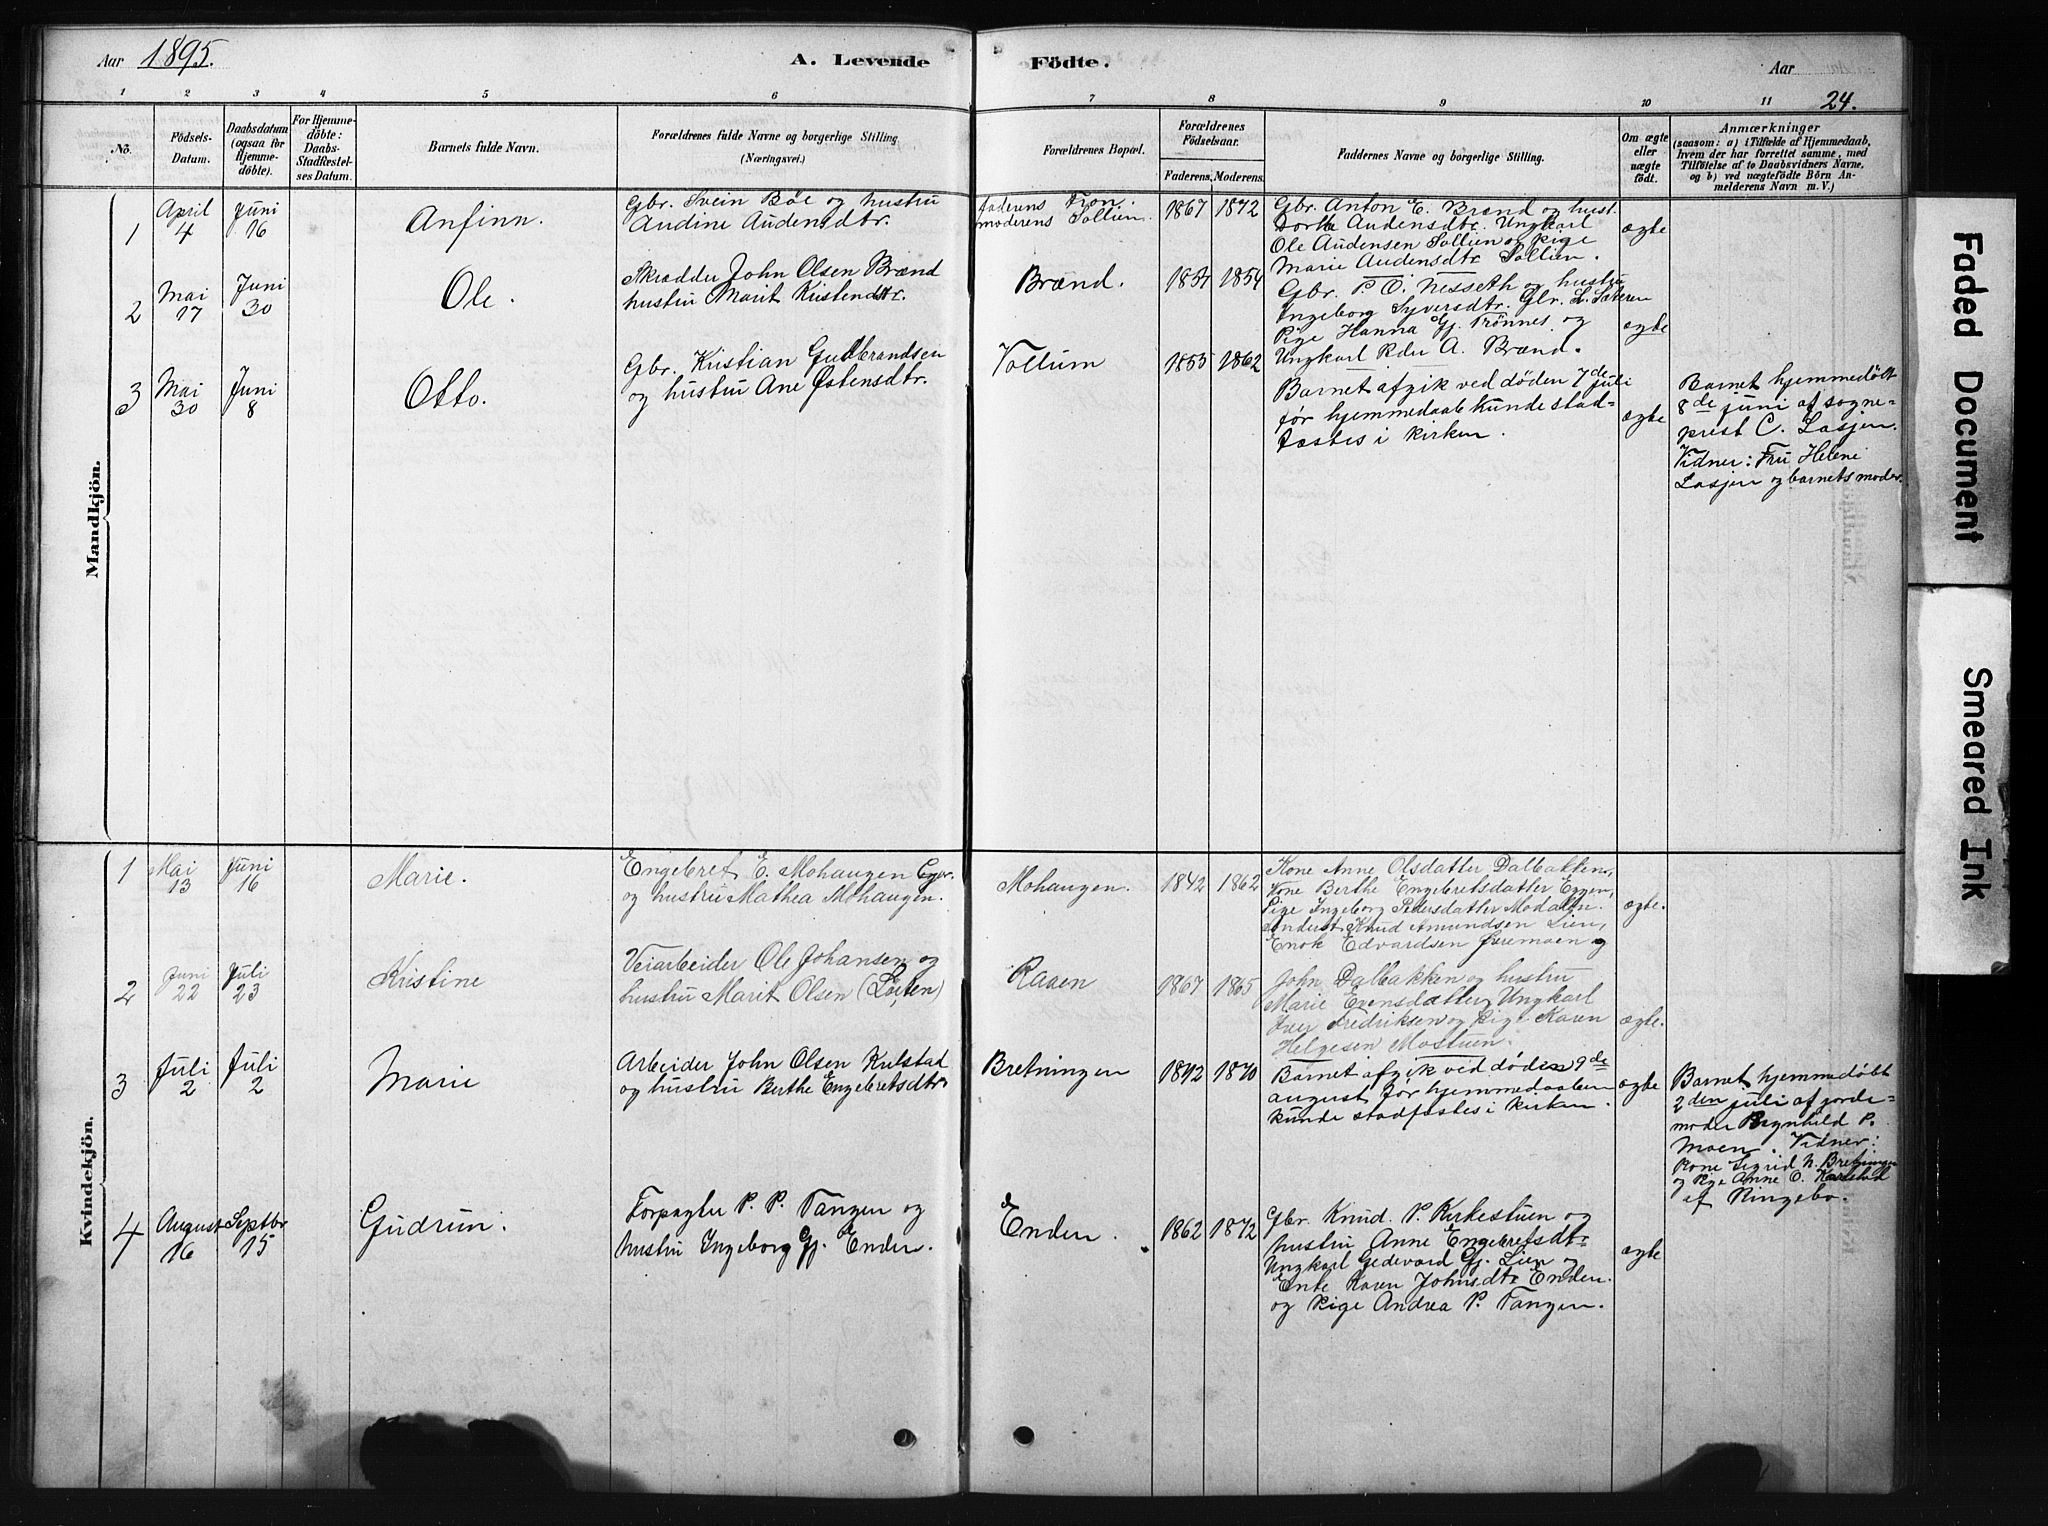 Aar 1895.
A. Levende Födte.
Aar
24.
1 2 3 4 5 6 7 8 9 10 11
No.
Födsels-
Datum.
Daabsdatum
(ogsaa for
Hjemme-
döbte).
For Hjemme-
döbte:
Daabs-
Stadfæstel-
ses Datum.
Barnets fulde Navn.
Forældrenes fulde Navne og borgerlige Stilling
(Næringsvei.)
Forældrenes Bopæl.
Forældrenes
Födselsaar.
Faderens. Moderens.
Faddernes Navne og borgerlige Stilling.
Om ægte
eller
uægte
født.
Anmærkninger
(saasom: a) i Tilfælde af Hjemmedaab,
hvem der har forrettet samme, med
Tilføielse af to Daabsvidners Navne,
og b) ved uægtefödte Börn An-
melderens Navn m. V.)
Mandkjön.
1
April
4
Juni
16
Anfinn.
Gbr. Svein Böe og hustru
Audine Audensdtr.
faderens Fron.
moderens Sollien.
1867 1872
Gbr. Anton E. Brænd og hust.
Dorthe Audensdtr. Ungkarl
Ole Audensen Sollien og pige
Marie Audensdtr. Sollien.
ægte
2
Mai
17
Juni
30
Ole.
Skrædder John Olsen Brænd
hustru Marit Kristensdtr.
Brænd.
1854
Gbr. P. O. Nesseth og hustru
Ingeborg Syversdtr. Gbr. L. Sæteren
Pige Hanna Gj. Trönnes og
Ungkarl Peder A. Brænd.
ægte
3
Mai
30
Juni
8
Otto.
Gbr. Kristian Gudbrandsen
og hustru Ane Østensdtr.
Vollum
1855 1862
Barnet afgik ved døden 7de juli
før hjemmedaab kunde stad-
fæstes i kirken.
ægte
Barnet hjemmedøbt
8de juni af sogne-
prest C. Lasjen.
Vidner: Fru Helene
Lasjen og barnets moder.
Kvindekjön.
1
Mai
13
Juni
16
Marie.
Engebret E. Mohaugen
og hustru Mathea Mohaugen.
Mohaugen.
1842 1862
Kone Anne Olsdatter Dalbakken,
Kone Berthe Engebretsdatter Eggen,
Pige Ingeborg Pedersdatter Modalen.
Knud Amundsen Lien,
Enok Edvardsen Øremoen og
ægte.
2
Juni
22
Juli
23
Kristine
Veiarbeider Ole Johansen og
hustru Marit Olsen (Løiten)
Raaen
1867 1865
John Dalbakken og hustru
Marie Evensdatter, Ungkarl
Iver Fredriksen og Pige Karen
Helgesen Mostuen.
ægte.
3
Juli
2
Juli
2
Marie
Arbeider John Olsen Kulstad
og hustru Berthe Engebretsdtr
Bretningen
1842 1870
Barnet afgik ved døden 9de
august før hjemmedaaben
kunde stadfæstes i kirken.
ægte
Barnet hjemmedøbt
2den juli af jorde-
moder Brynhild P.
Moen. Vidner:
Kone Sigrid N. Bretningen
og Pige Anne O. Kulstad
af Ringebo.
4
August
16
Septbr
15
Gudrun.
Forpagter P. P. Tangen og
hustru Ingeborg Gj. Enden.
Enden.
1862 1872
Gbr. Knud P. Kirkestuen og
hustru Anne Engebretsdtr
Ungkarl Gedevard Gj. Lien og
Enke Karen Johnsdtr Enden.
og Pige Andrea P. Tangen.
ægte
Faded Document
Smeared Ink